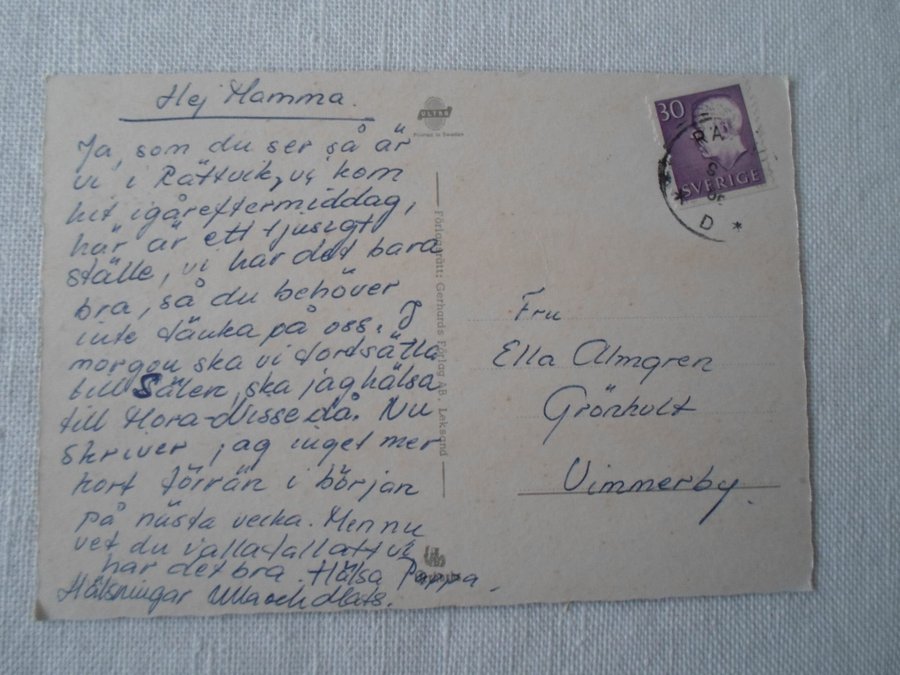 Hej Mamma.
Ja, som du ser så är
vi i Rättvik, vi kom
hit igåreftermiddag,
här är ett tjusigt
ställe, vi har det bara
bra, så du behöver
inte tänka på oss. I
morgon ska vi fortsätta
till Sälen, ska jag hälsa
till Mora-Nisse då. Nu
skriver jag inget mer
kort förrän i början
på nästa vecka. Men nu
vet du iallafall att vi
har det bra. Hälsa Pappa.
Hälsningar Ulla och Mats.
ULTRA
Printed in Sweden
Förlagsrätt: Gerhards Förlag AB, Leksand
30
SVERIGE
RÄ
D
Fru
Ella Almgren
Grönhult
Vimmerby.